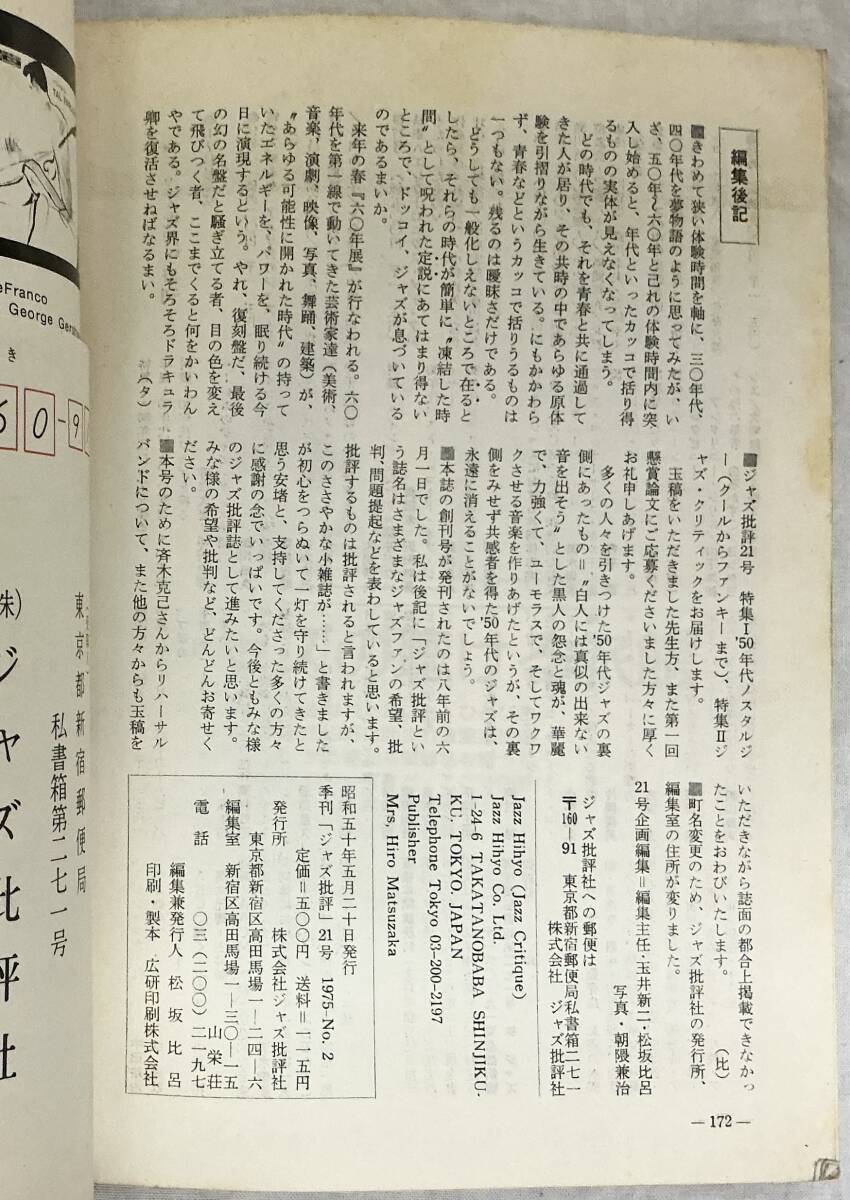 編集後記
■きわめて狭い体験時間を軸に、三〇年代、
四〇年代を夢物語のように思ってみたが、い
ざ、五〇年〜六〇年と己れの体験時間内に突
入し始めると、年代といったカッコで括り得
るものの実体が見えなくなってしまう。
どの時代でも、それを青春と共に通過して
きた人が居り、その共時の中であらゆる原体
験を引摺りながら生きている。にもかかわら
ず、青春などというカッコで括りうるものは
一つもない。残るのは曖昧さだけである。
どうしても一般化しえないところで在ると
したら、それらの時代が簡単に〝凍結した時
間〟として呪われた定説にあてはまり得ない
ところで、ドッコイ、ジャズが息づいている
のであるまいか。
来年の春『六〇年展』が行なわれる。六〇
年代を第一線で動いてきた芸術家達（美術、
音楽、演劇、映像、写真、舞踊、建築）が、
〝あらゆる可能性に開かれた時代〟の持って
いたエネルギーを、パワーを、眠り続ける今
日に演現するという。やれ、復刻盤だ、最後
の幻の名盤だと騒ぎ立てる者、目の色を変え
て飛びつく者、ここまでくると何をかいわん
やである。ジャズ界にもそろそろドラキュラ
卿を復活させねばなるまい。
（タ）
■ジャズ批評21号 特集Ⅰ'50年代ノスタルジ
ー（クールからファンキーまで）、特集Ⅱジ
ャズ・クリティックをお届けします。
玉稿をいただきました先生方、また第一回
懸賞論文にご応募くださいました方々に厚く
お礼申しあげます。
多くの人々を引きつけた'50年代ジャズの裏
側にあったもの＝〝白人には真似の出来ない
音を出そう〟とした黒人の怨念と魂が、華麗
で、力強くて、ユーモラスで、そしてワクワ
クさせる音楽を作りあげたというが、その裏
側をみせず共感者を得た'50年代のジャズは、
永遠に消えることがないでしょう。
■本誌の創刊号が発刊されたのは八年前の六
月一日でした。私は後記に「ジャズ批評とい
う誌名はさまざまなジャズファンの希望、批
判、問題提起などを表わしていると思います。
批評するものは批評されると言われますが、
このささやかな小雑誌が……」と書きました
が初心をつらぬいて一灯を守り続けてきたと
思う安堵と、支持してくださった多くの方々
に感謝の念でいっぱいです。今後ともみな様
のジャズ批評誌として進みたいと思います。
みな様の希望や批判など、どんどんお寄せく
ださい。
■本号のために斉木克己さんからリハーサル
バンドについて、また他の方々からも玉稿を
いただきながら誌面の都合上掲載できなかっ
たことをおわびいたします。 （比）
■町名変更のため、ジャズ批評社の発行所、
編集室の住所が変りました。
写真・朝隈兼治
21号企画編集＝編集主任・玉井新二・松坂比呂
ジャズ批評社への郵便は
〒160―91 東京都新宿郵便局私書箱二七一
株式会社 ジャズ批評社
Jazz Hihyo (Jazz Critique)
Jazz Hihyo Co. Ltd.
1-24-6 TAKATANOBABA SHINJIKU-
KU. TOKYO, JAPAN
Telephone Tokyo 03-200-2197
Publisher
Mrs, Hiro Matsuzaka
昭和五十年五月二十日発行
季刊「ジャズ批評」21号 1975-No. 2
定価＝五〇〇円 送料＝一一五円
発行所 株式会社ジャズ批評社
東京都新宿区高田馬場一―二四―六
編集室 新宿区高田馬場一―三〇―一五
山栄荘
電話 〇三（二〇〇）二一九七
編集兼発行人 松坂比呂
印刷・製本 広研印刷株式会社
― 172 ―
eFranco
George Gers
き
60-9
東京都新宿郵便局
私書箱第二七一号
株)ジャズ批評社